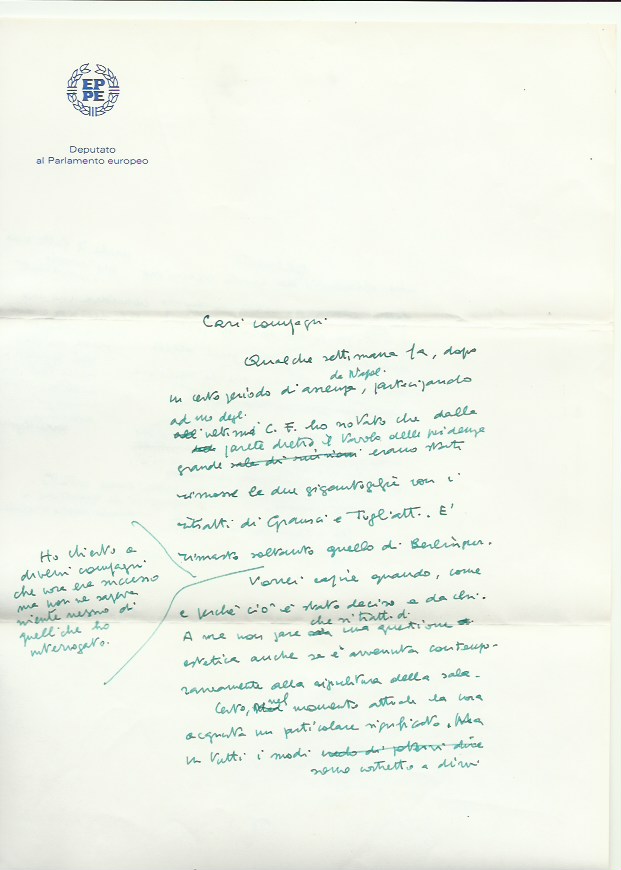 EP
PE
Deputato
al Parlamento europeo
Cari compagni
Qualche settimana fa, dopo
da Napoli
un certo periodo d'assenza, partecipando
ad uno degli
ultimi C.F. ho notato che dalla
parete dietro il tavolo della presidenza
grande sala di riunioni erano state
rimosse le due gigantografie con i
ritratti di Gramsci e Togliatti. E'
rimasto soltanto quello di Berlinguer.
Ho chiesto a
diversi compagni
che cosa era successo
ma non ne sapeva
niente nessuno di
quelli che ho
interrogato.
Vorrei capire quando, come
e perché ciò è stato deciso e da chi.
che si tratti di
A me non pare una questione
estetica anche se è avvenuta contempo-
raneamente alla ripulitura della sala.
Certo, nel momento attuale la cosa
acquista un particolare significato. Ma
in tutti i modi credo di potervi dire
sono costretto a dirvi